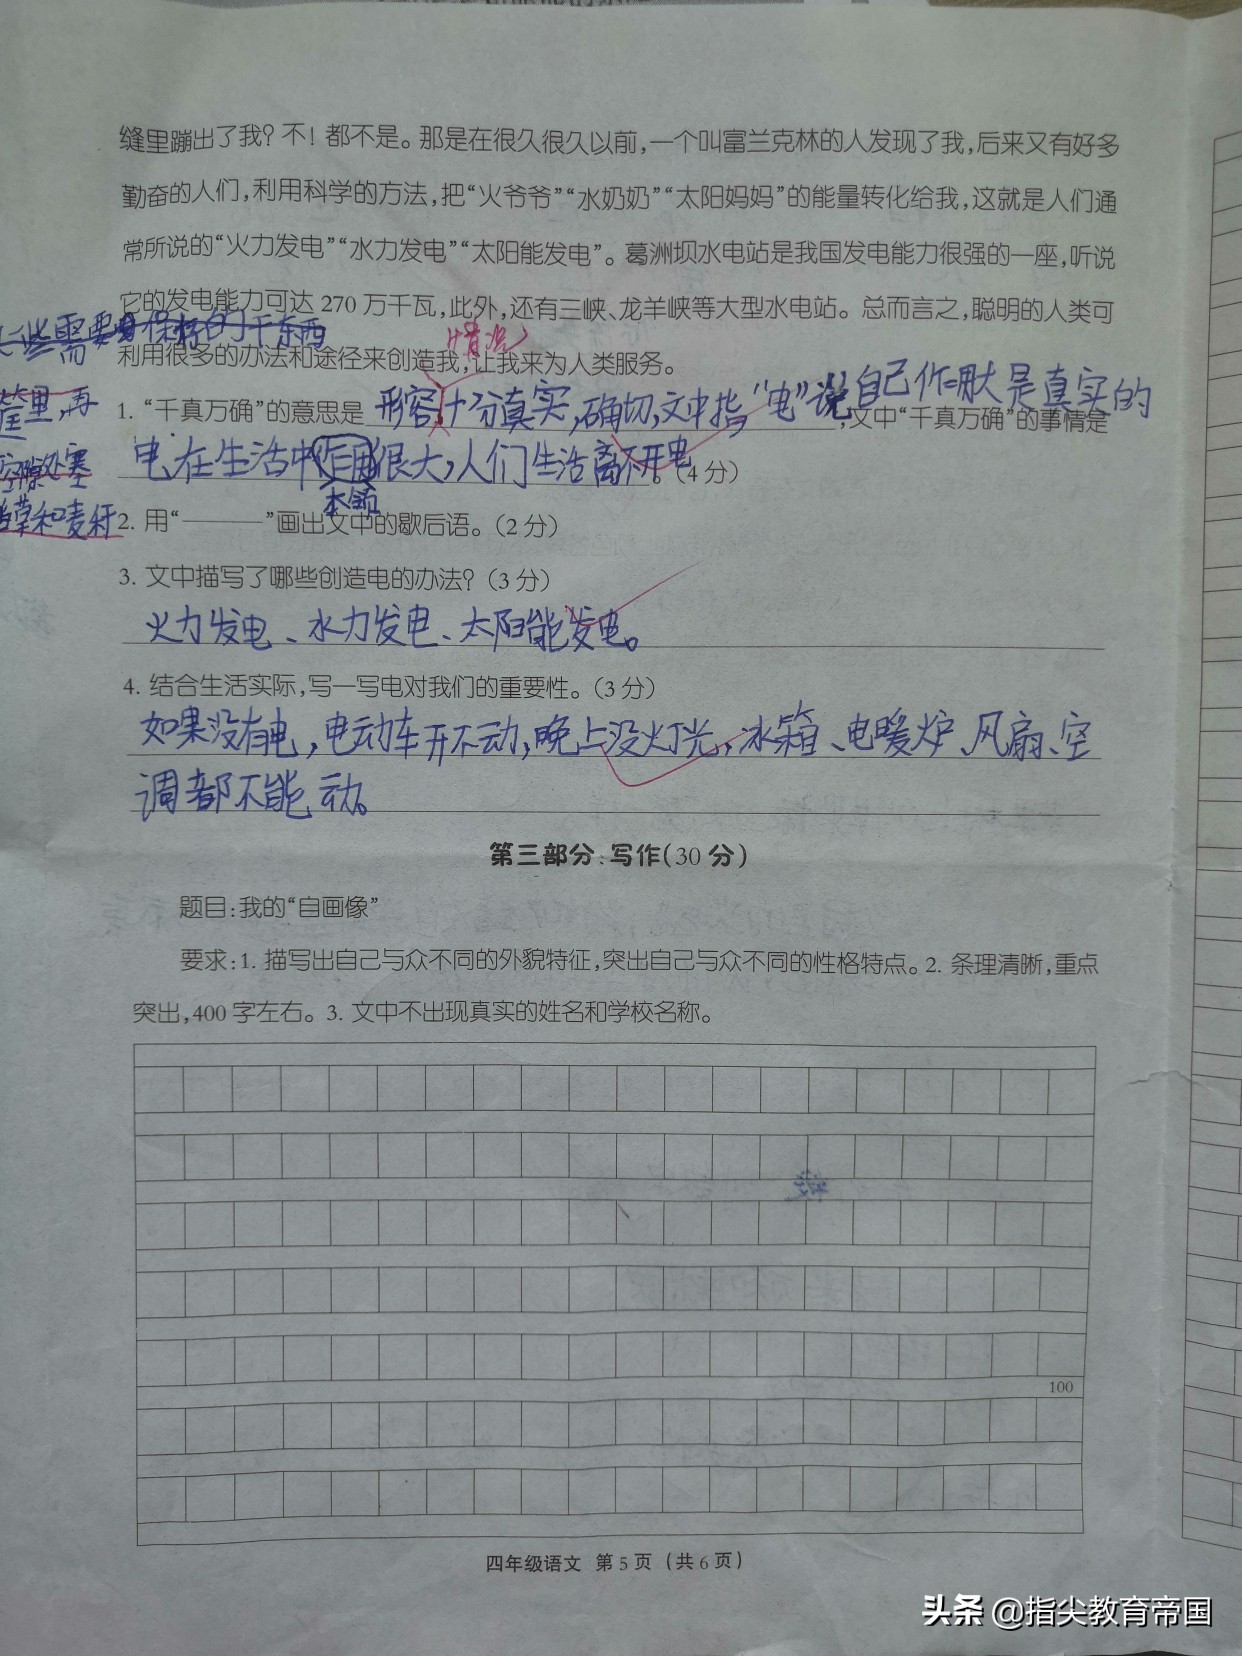 缝里蹦出了我？不！都不是。那是在很久很久以前，一个叫富兰克林的人发现了我，后来又有好多
勤奋的人们，利用科学的方法，把“火爷爷”“水奶奶”“太阳妈妈”的能量转化给我，这就是人们通
常所说的“火力发电”“水力发电”“太阳能发电”。葛洲坝水电站是我国发电能力很强的一座，听说
它的发电能力可达 270 万千瓦，此外，还有三峡、龙羊峡等大型水电站。总而言之，聪明的人类可
些需要保持的干东西
情况
利用很多的办法和途径来创造我，让我来为人类服务。
筐里，再
1. “千真万确”的意思是 形容十分真实，确切，文中指“电”说自己作用大是真实的，文中“千真万确”的事情是
空隙处塞
电在生活中作用很大，人们生活离不开电。（4 分）
本领
草和麦秆
2. 用“———”画出文中的歇后语。（2 分）
3. 文中描写了哪些创造电的办法？（3 分）
火力发电、水力发电、太阳能发电。
4. 结合生活实际，写一写电对我们的重要性。（3 分）
如果没有电，电动车开不动，晚上没灯光，冰箱、电暖炉、风扇、空
调都不能动。
第三部分：写作（30 分）
题目：我的“自画像”
要求：1. 描写出自己与众不同的外貌特征，突出自己与众不同的性格特点。2. 条理清晰，重点
突出，400 字左右。3. 文中不出现真实的姓名和学校名称。
100
四年级语文 第 5 页（共 6 页）
头条 @指尖教育帝国